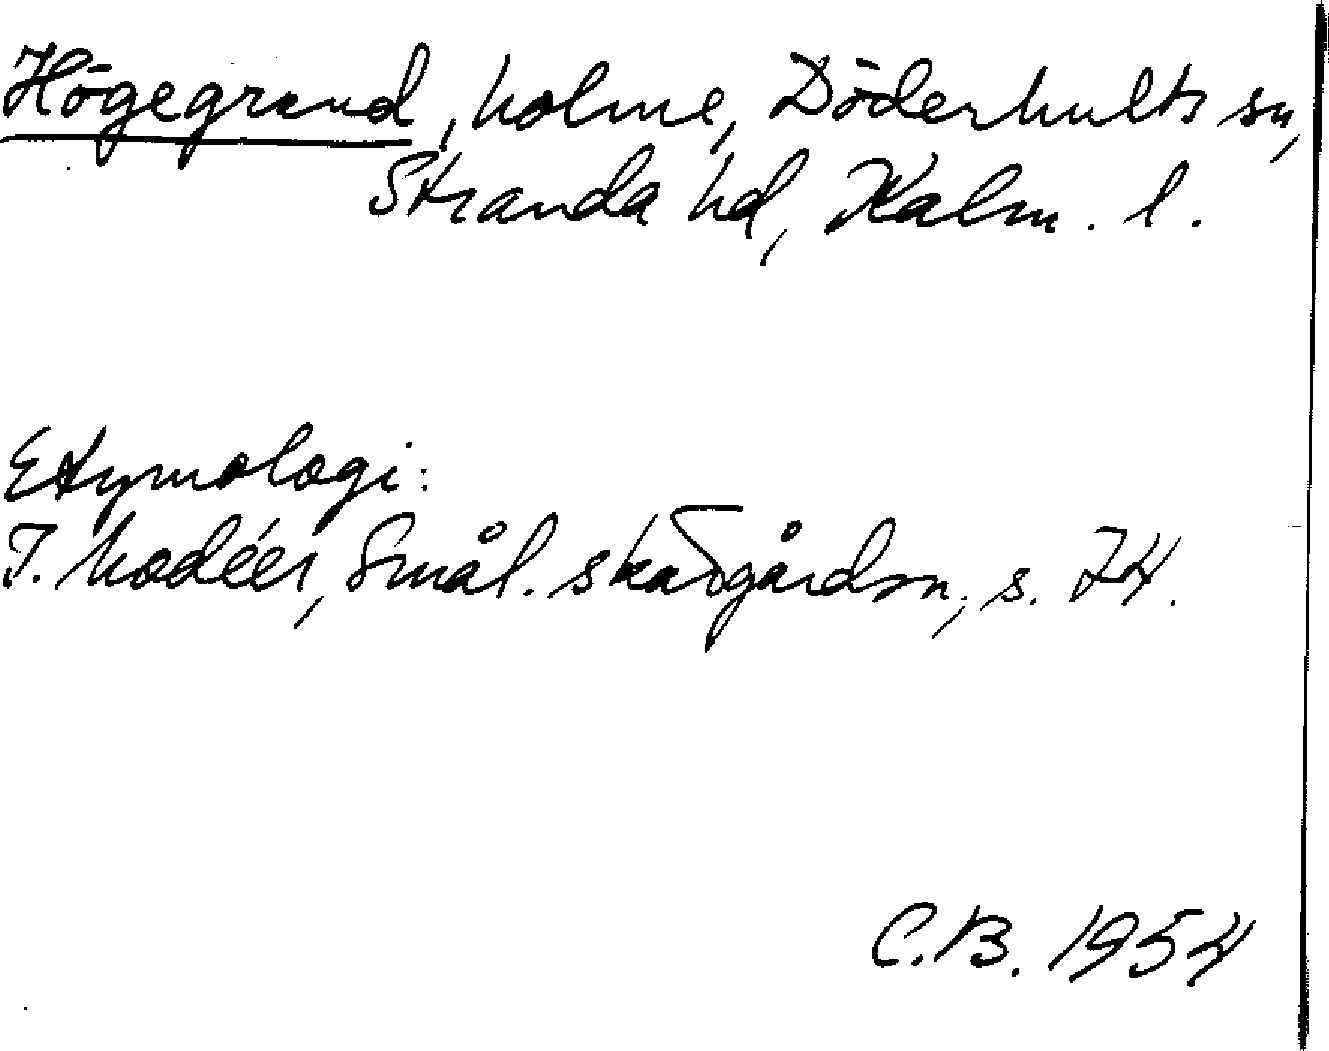 Högegrund, holme, Döderhults sn,
Stranda hd, Kalm. l.
Etymologi:
I. Modéer, Smål. skärgårdsn., s. 74.
C.B. 1954